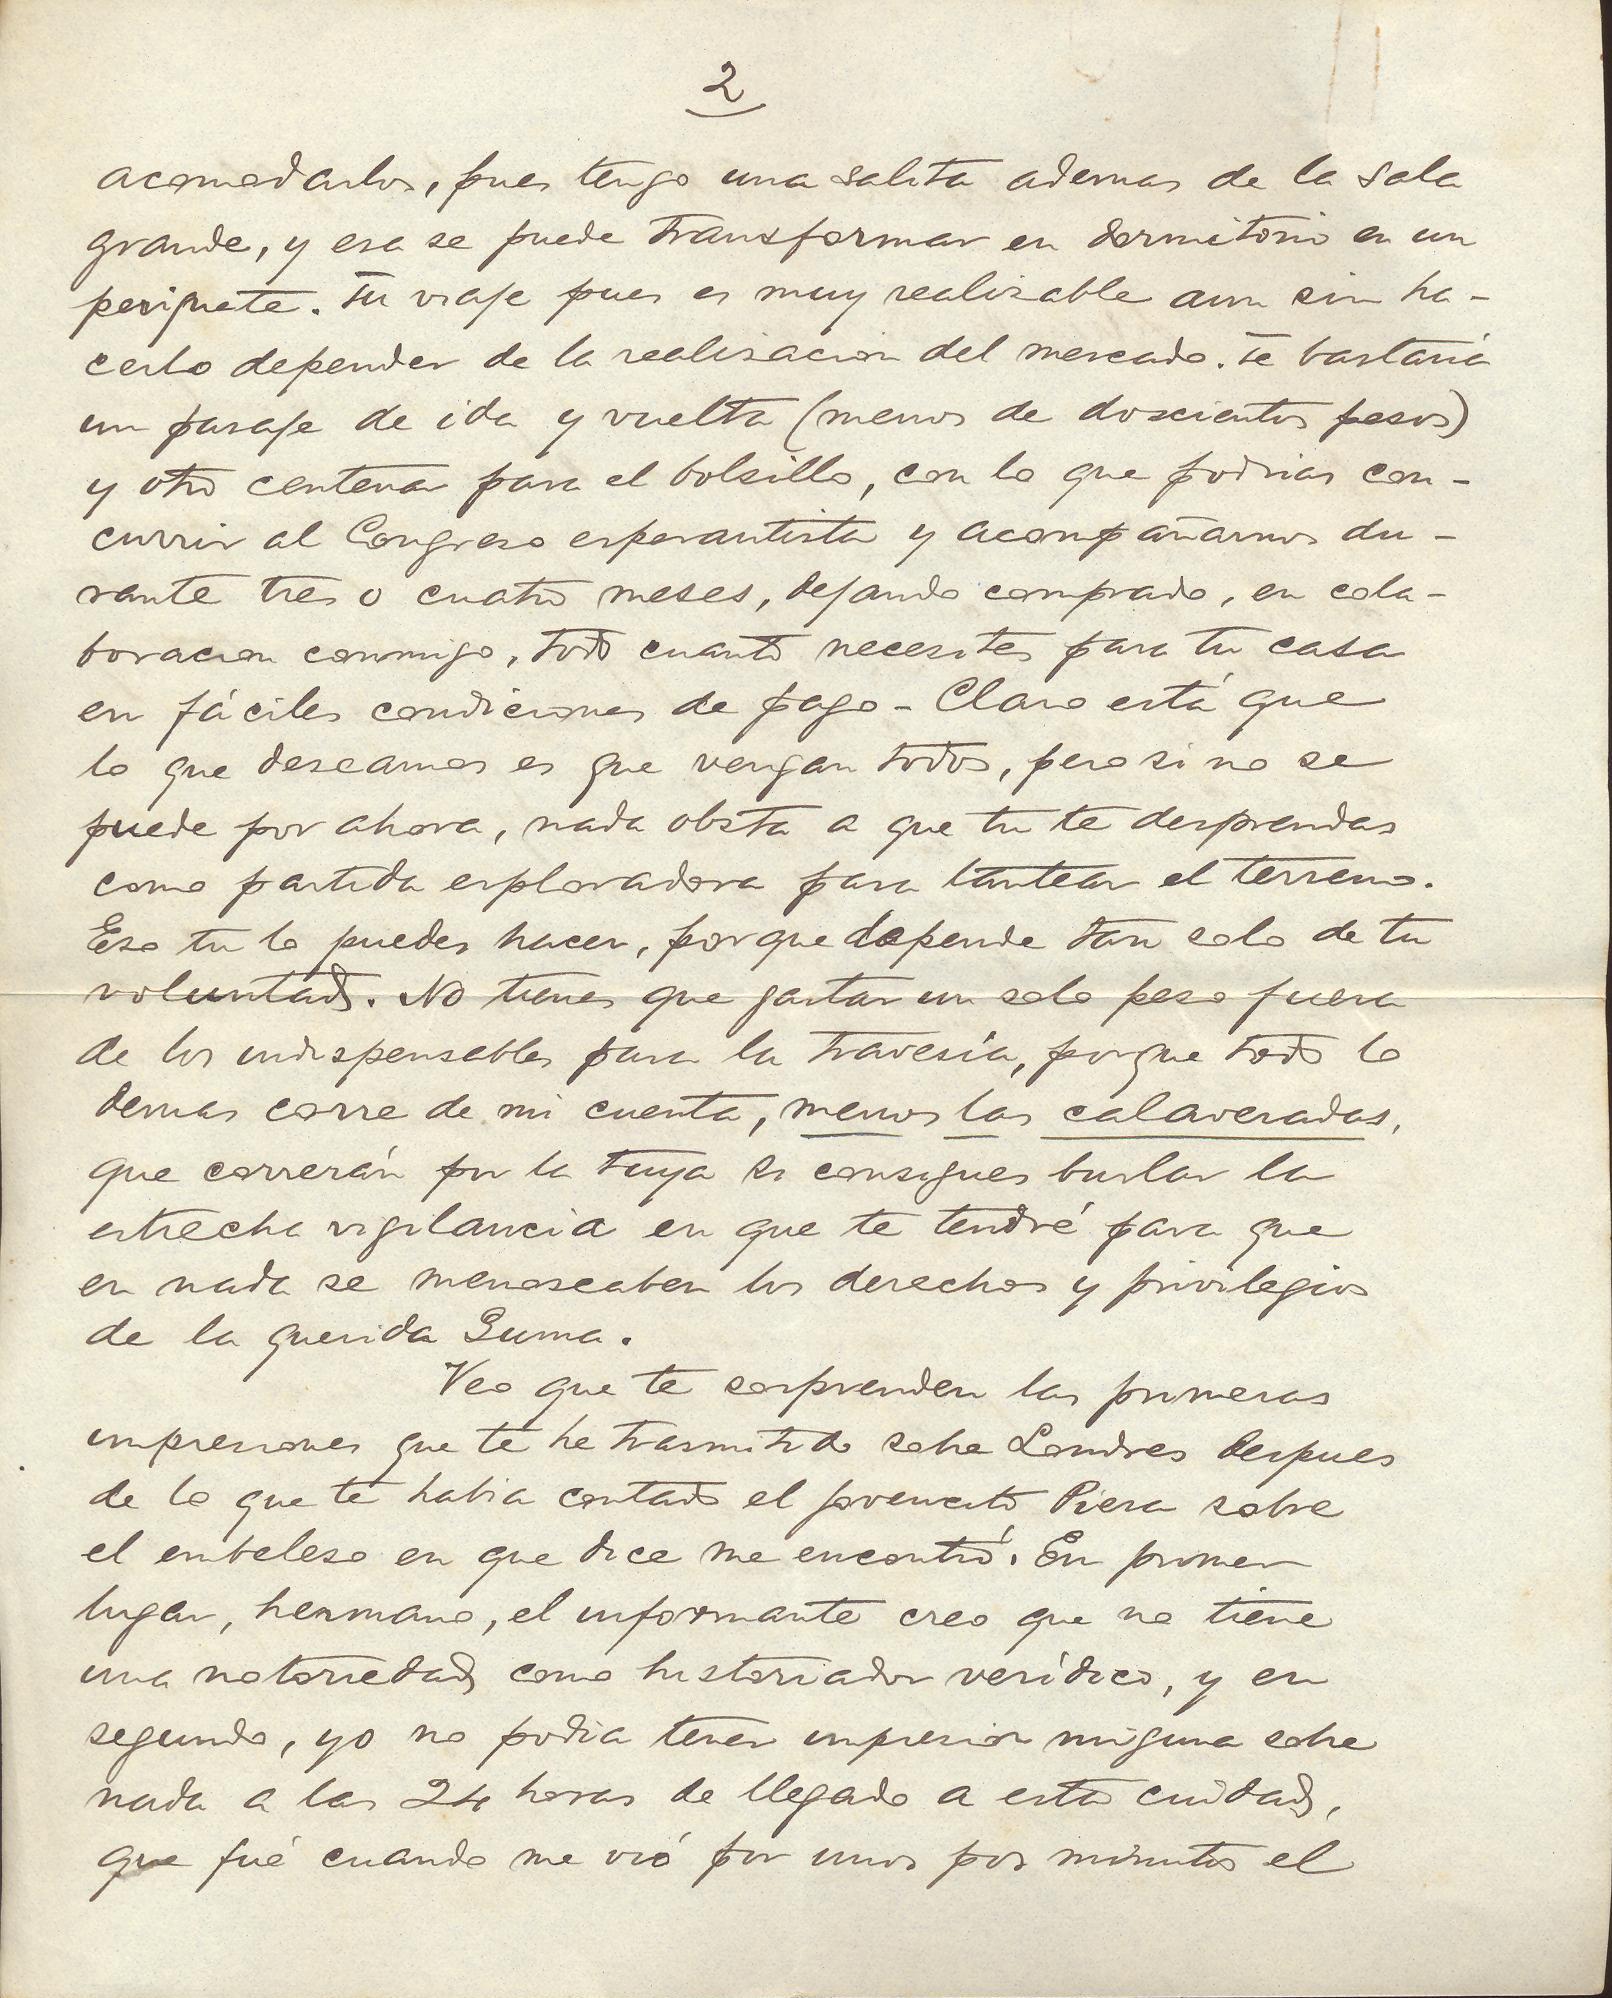 2
acomodarlos, pues tengo una salita ademas de la sala
grande, y esa se puede transformar en dormitorio en un
periquete. Tu viaje pues es muy realizable aun sin ha-
cerlo depender de la realizacion del mercado. Te bastaria
un pasaje de ida y vuelta (menos de doscientos pesos)
y otro centenar para el bolsillo, con lo que podrias con-
currir al Congreso esperantista y acompañarnos du-
rante tres o cuatro meses, dejando comprado, en cola-
boracion conmigo, todo cuanto necesites para tu casa
en fáciles condiciones de pago - Claro está que
lo que deseamos es que vengan todos, pero si no se
puede por ahora, nada obsta a que tu te desprendas
como partida exploradora para tantear el terreno.
Eso tu lo puedes hacer, porque depende tan solo de tu
voluntad. No tienes que gastar un solo peso fuera
de los indispensables para la travesía, porque todo lo
demas corre de mi cuenta, menos las calaveradas,
que correrán por la tuya si consigues burlar la
estrecha vigilancia en que te tendré para que
en nada se menoscaben los derechos y privilegios
de la querida Guma.
Veo que te sorprenden las primeras
impresiones que te he trasmitido sobre Londres despues
de lo que te habia contado el jovencito Piera sobre
el embeleso en que dice me encontró. En primer
lugar, hermano, el informante creo que no tiene
una notoriedad como historiador verídico, y en
segundo, yo no podia tener impresion ninguna sobre
nada a las 24 horas de llegado a esta ciudad,
que fué cuando me vió por unos pos minutos el